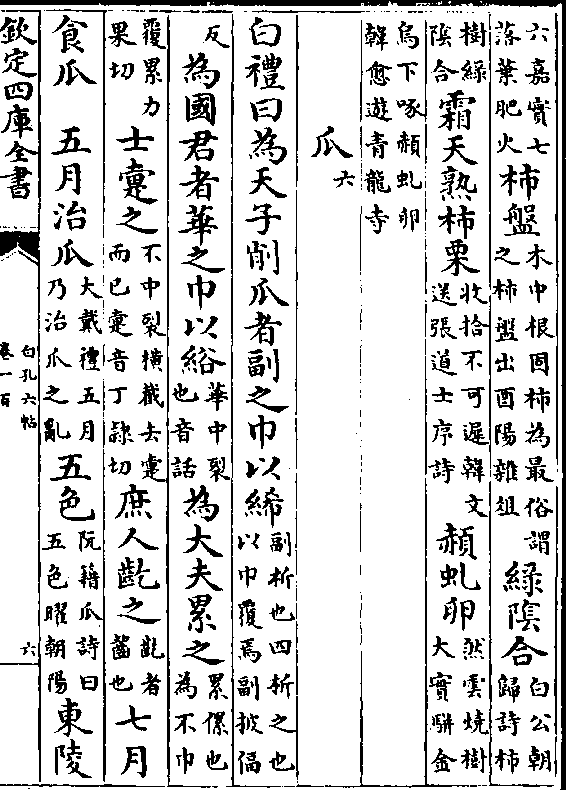 六嘉實七
落葉肥火
柿盤
木中根固柿為最俗謂
之柿盤出酉陽雜俎
綠陰合
白公朝
歸詩柿
樹綠
陰合
霜天熟柿栗
收拾不可遲韓文
送張道士序詩
赬虬卵
然雲燒樹
大實駢金
烏下啄赬虬卵
韓愈遊青龍寺
瓜
六
白禮曰為天子削瓜者副之巾以絺
副析也四析之也
以巾覆焉副披偪
反
為國君者華之巾以綌
華中裂
也音話
為大夫累之
累倮也
為不巾
覆累力
果切
士疐之
不中裂橫截去疐
而已疐音丁隸切
庶人齕之
齕者
齧也
七月
食瓜
五月治瓜
大戴禮五月
乃治瓜之亂
五色
阮籍瓜詩曰
五色曜朝陽
東陵
欽定四庫全書
白孔六帖
卷一百
六